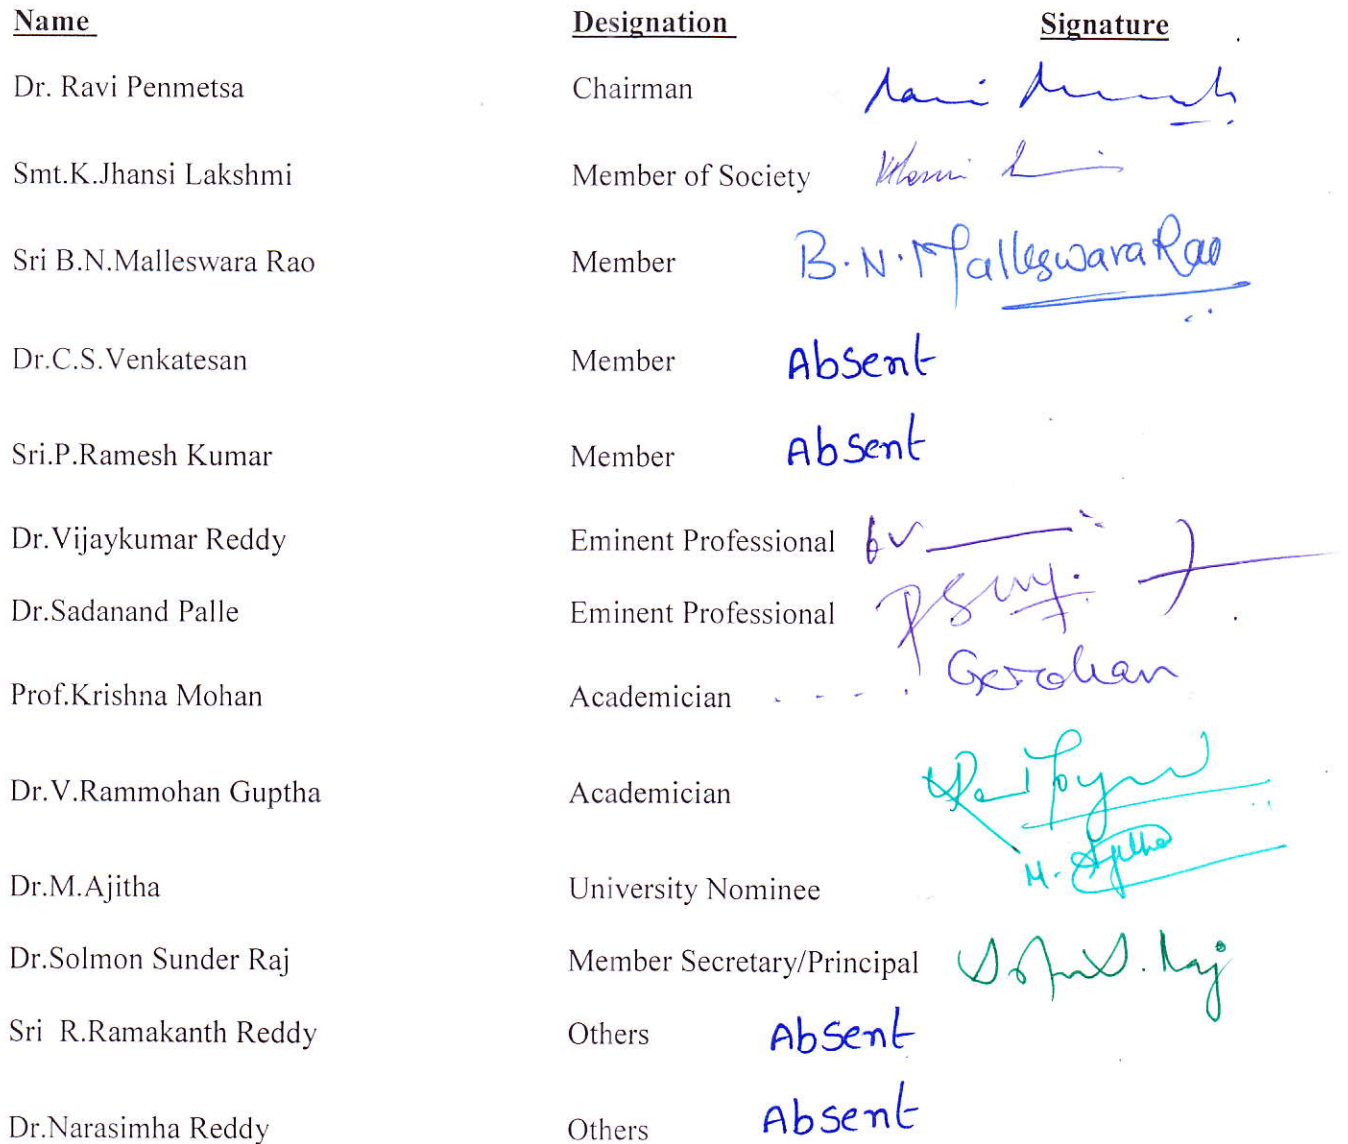 Name Designation Signature
Dr. Ravi Penmetsa Chairman
Smt.K.Jhansi Lakshmi Member of Society
Sri B.N.Malleswara Rao Member B.N.Malleswara Rao
Dr.C.S.Venkatesan Member Absent
Sri.P.Ramesh Kumar Member Absent
Dr.Vijaykumar Reddy Eminent Professional
Dr.Sadanand Palle Eminent Professional
Prof.Krishna Mohan Academician
Dr.V.Rammohan Guptha Academician
Dr.M.Ajitha University Nominee M. Ajitha
Dr.Solmon Sunder Raj Member Secretary/Principal
Sri R.Ramakanth Reddy Others Absent
Dr.Narasimha Reddy Others Absent